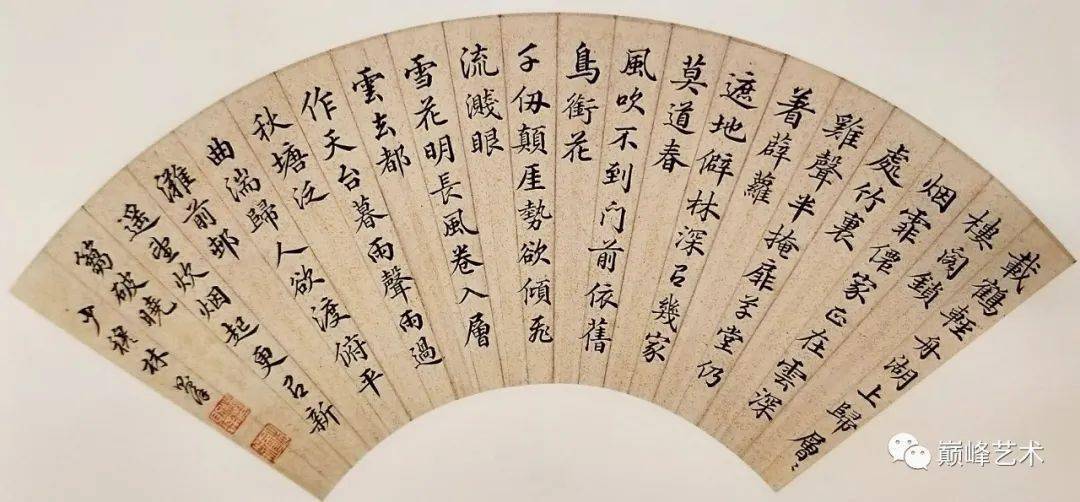 載鶴輕舟湖上歸層〻
樓閣鎖
烟霏僊家正在雲深
處竹裏
雞聲半掩扉草堂仍
着薜蘿
遮地僻林深有幾家
莫道春
風吹不到门前依舊
鳥銜花
千仞顛厓勢欲傾飛
流濺眼
雪花明長風卷入層
雲去都
作天台暮雨聲雨過
秋塘泛
曲湍歸人欲渡俯平
灘前邨
遥望炊烟起更有新
篘破曉
少穆林
巅峰艺术